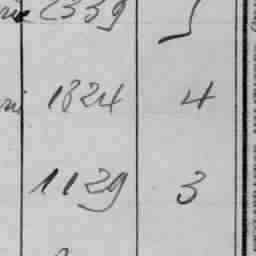 2339 5
1824 4
1139 3